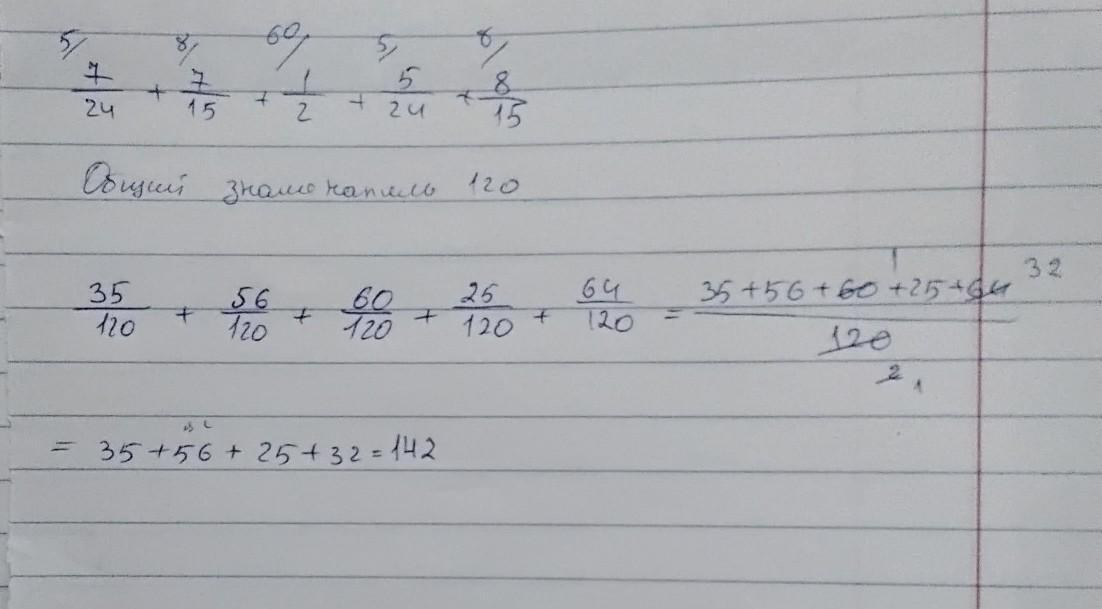 5/ 8/ 60/ 5/ 8/
7/24 + 7/15 + 1/2 + 5/24 + 8/15
Общий знаменатель 120
35/120 + 56/120 + 60/120 + 25/120 + 64/120 = 35+56+60+25+64/120 1 32 2 1
= 35+56+25+32=142